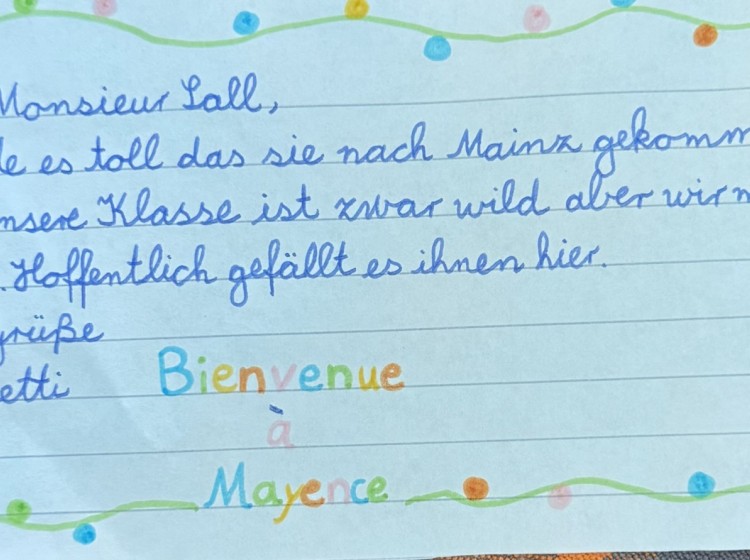 Monsieur Sall,
de es toll das sie nach Mainz gekomm
nsere Klasse ist zwar wild aber wir
. Hoffentlich gefällt es ihnen hier.
grüße
etti
Bienvenue
à
Mayence